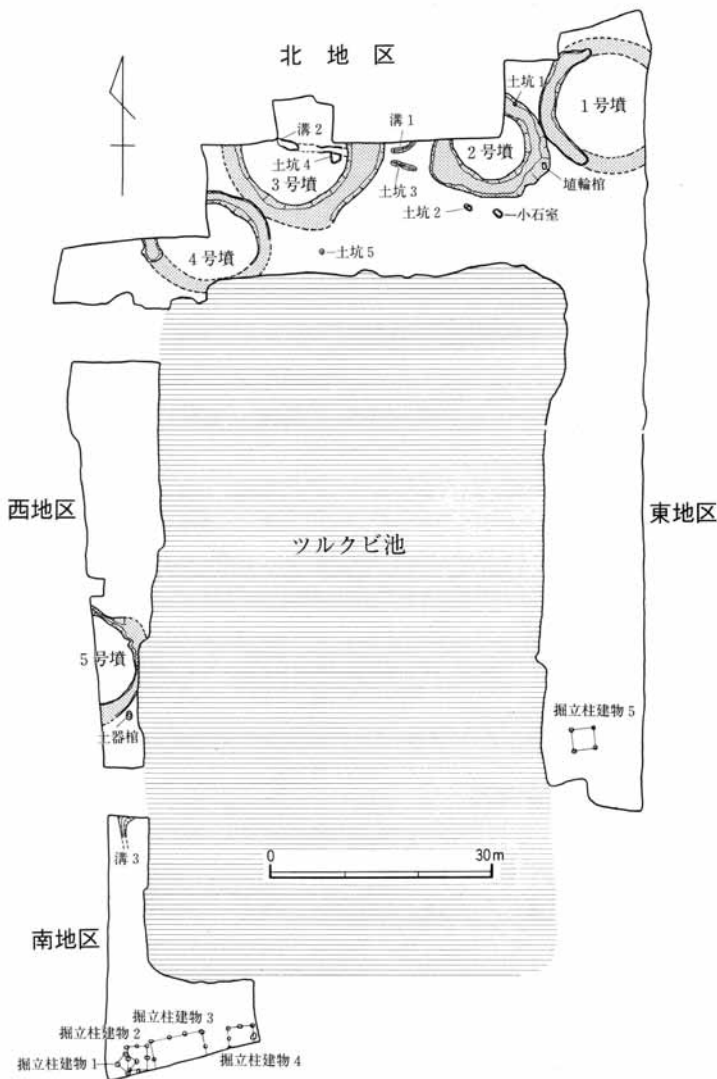 北地区
土坑1
1号墳
溝2
溝1
土坑4
2号墳
3号墳
土坑3
埴輪棺
土坑2
小石室
4号墳
土坑5
西地区
東地区
ツルクビ池
5号墳
土器棺
掘立柱建物5
0
30m
溝3
南地区
掘立柱建物3
掘立柱建物2
掘立柱建物1
掘立柱建物4